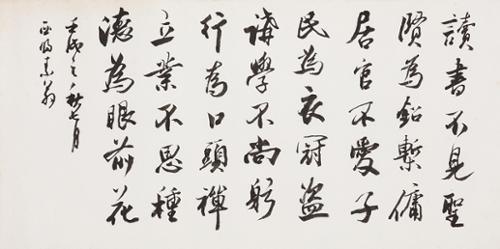 讀書不見聖
賢為鉛槧傭
居官不愛子
民為衣冠盜
講學不尚躬
行為口頭禪
立業不思種
德為眼前花
壬戌之秋七月